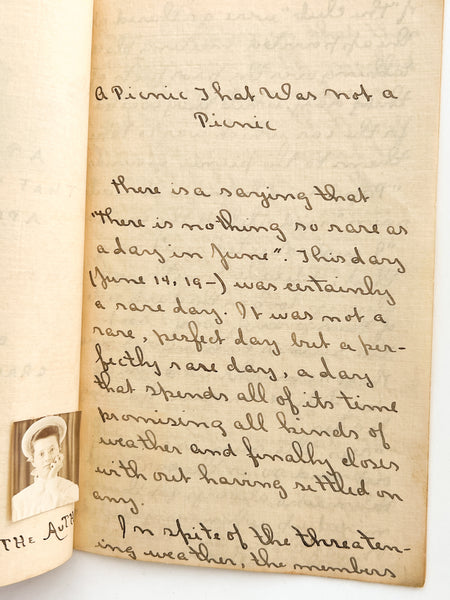 A Picnic That Was not a
Picnic
There is a saying that
"There is nothing so rare as
a day in June". This day
(June 14, 19-) was certainly
a rare day. It was not a
rare, perfect day but a per-
fectly rare day, a day
that spends all of its time
promising all kinds of
weather and finally closes
with out having settled on
any.
In spite of the threaten-
ing weather, the members
THE AUTH